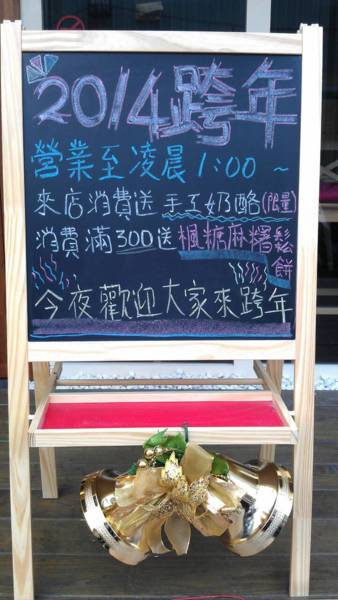 2014跨年
營業至凌晨1:00~
來店消費送手工奶酪(限量)
消費滿300送楓糖麻糬鬆餅
今夜歡迎大家來跨年